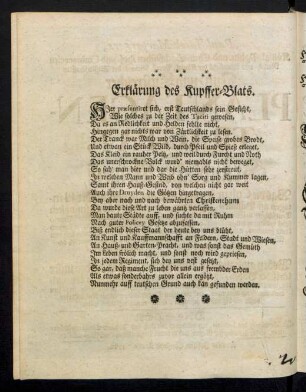 Erklärung des Kupffer-Blats.
Hier præsentiret sich, erst Teutschlands sein Gesicht,
Wie solches zu der Zeit des Taciti gewesen,
Da es an Redlichkeit und Helden fehlte nicht,
Hingegen gar nichts war von Zärtlichkeit zu lesen.
Der Tranck war Milch und Wein, die Speise grobes Brodt,
Und etwan ein Stück Wildt, durch Pfeil und Spiess erleget.
Das Kleid ein rauher Peltz, und weil durch Furcht und Noth
Das unerschrockne Volck word' niemahls nicht beweget,
So sieh man hier und dar die Hütten sehr zerstreut,
In welchen Mann und Weib ohn' Sorg und Kummer lagen,
Samt ihren Hauß-Gesind, von welchen nicht gar weit
Auch ihre Druyden die Götzen hingetragen.
Bey aber nach und nach bewährten Christenthum
Da wurde diese Art zu leben gantz verlassen,
Man baute Städte auff, und suchte da mit Ruhm
Nach guter Policey Gesetze abzufassen,
Biß endlich dieser Staat der heute bey uns blüht,
An Kunst und Kauffmannschafft an Feldern, Stadt und Wiesen,
An Hauß- und Garten-Pracht, und was sonst das Gemüth
Im leben frölich macht, und sonst noch wird gepriesen,
In jedem Regiment, sich bey uns vest gesetzt,
So gar, daß manche Frucht die uns aus fremder Erden
Als etwas sonderbahrs zuvor allein ergötzt,
Nunmehr auff teutschen Grund auch kan gefunden werden.